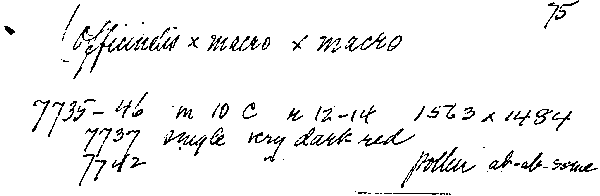 75
(Officinalis x macro x macro
7735-46 m 10 C n 12-14 1563 x 1484
7737 single very dark red
7742 pollen ab-ab-some